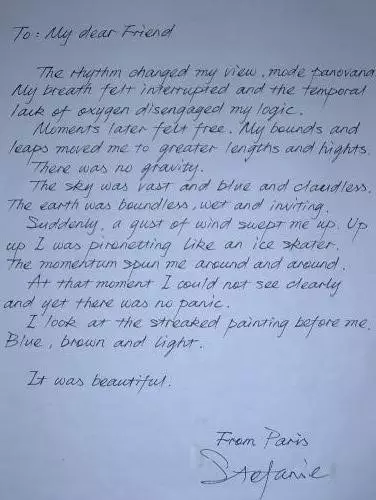 To: My dear Friend
The rhythm changed my view, mode panorama
My breath felt interrupted and the temporal
lack of oxygen disengaged my logic.
Moments later felt free. My bounds and
leaps moved me to greater lengths and hights.
There was no gravity.
The sky was vast and blue and claudless.
The earth was boundless, wet and inviting.
Suddenly, a gust of wind swept me up. Up
up I was pironetting like an ice skater.
The momentum spun me around and around.
At that moment I could not see clearly
and yet there was no panic.
I look at the streaked painting before me.
Blue, brown and light.
It was beautiful.
From Paris
Stefanie